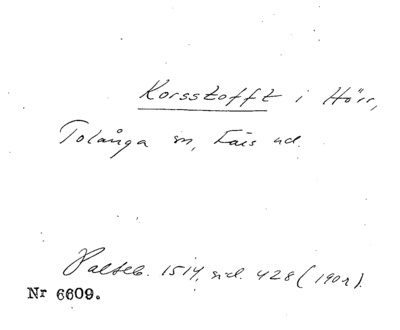 Korsstofft i Hörr,
Tolånga sn, Färs hd.
Palteb. 1514, sid. 428 (190r).
Nr 6609.